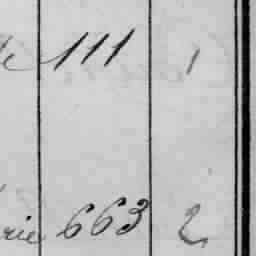 111 1
rie 663 2